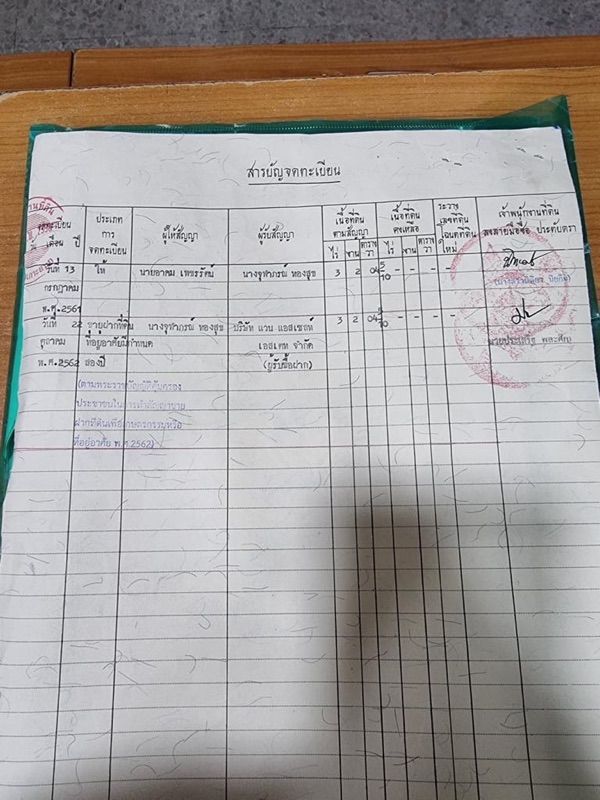 สารบัญจดทะเบียน
จดทะเบียน
เดือน ปี
ประเภท
การ
จดทะเบียน
ผู้ให้สัญญา
ผู้รับสัญญา
เนื้อที่ดิน
ตามสัญญา
ไร่ งาน ตาราง
วา
เนื้อที่ดิน
คงเหลือ
ไร่ งาน ตาราง
วา
ระวาง
เลขที่ดิน
โฉนดที่ดิน
ใหม่
เจ้าพนักงานที่ดิน
ลงลายมือชื่อ ประทับตรา
วันที่ 13 ให้ นายอาคม เพชรรัตน์ นางจุฬาภรณ์ ทองสุข 3 2 04 5/10 - - - -
กรกฎาคม
พ.ศ.2561
วันที่ 22 ขายฝากที่ดิน นางจุฬาภรณ์ ทองสุข บริษัท แวน แอสเซทส์ 3 2 04 - - - -
ตุลาคม ที่อยู่อาศัยมีกำหนด เอสเตท จำกัด
พ.ศ.2562 สองปี (ผู้รับซื้อฝาก)
(ตามพระราชบัญญัติคุ้มครอง
ประชาชนในการทำสัญญาขาย
ฝากที่ดินเพื่อเกษตรกรรมหรือ
ที่อยู่อาศัย พ.ศ.2562)